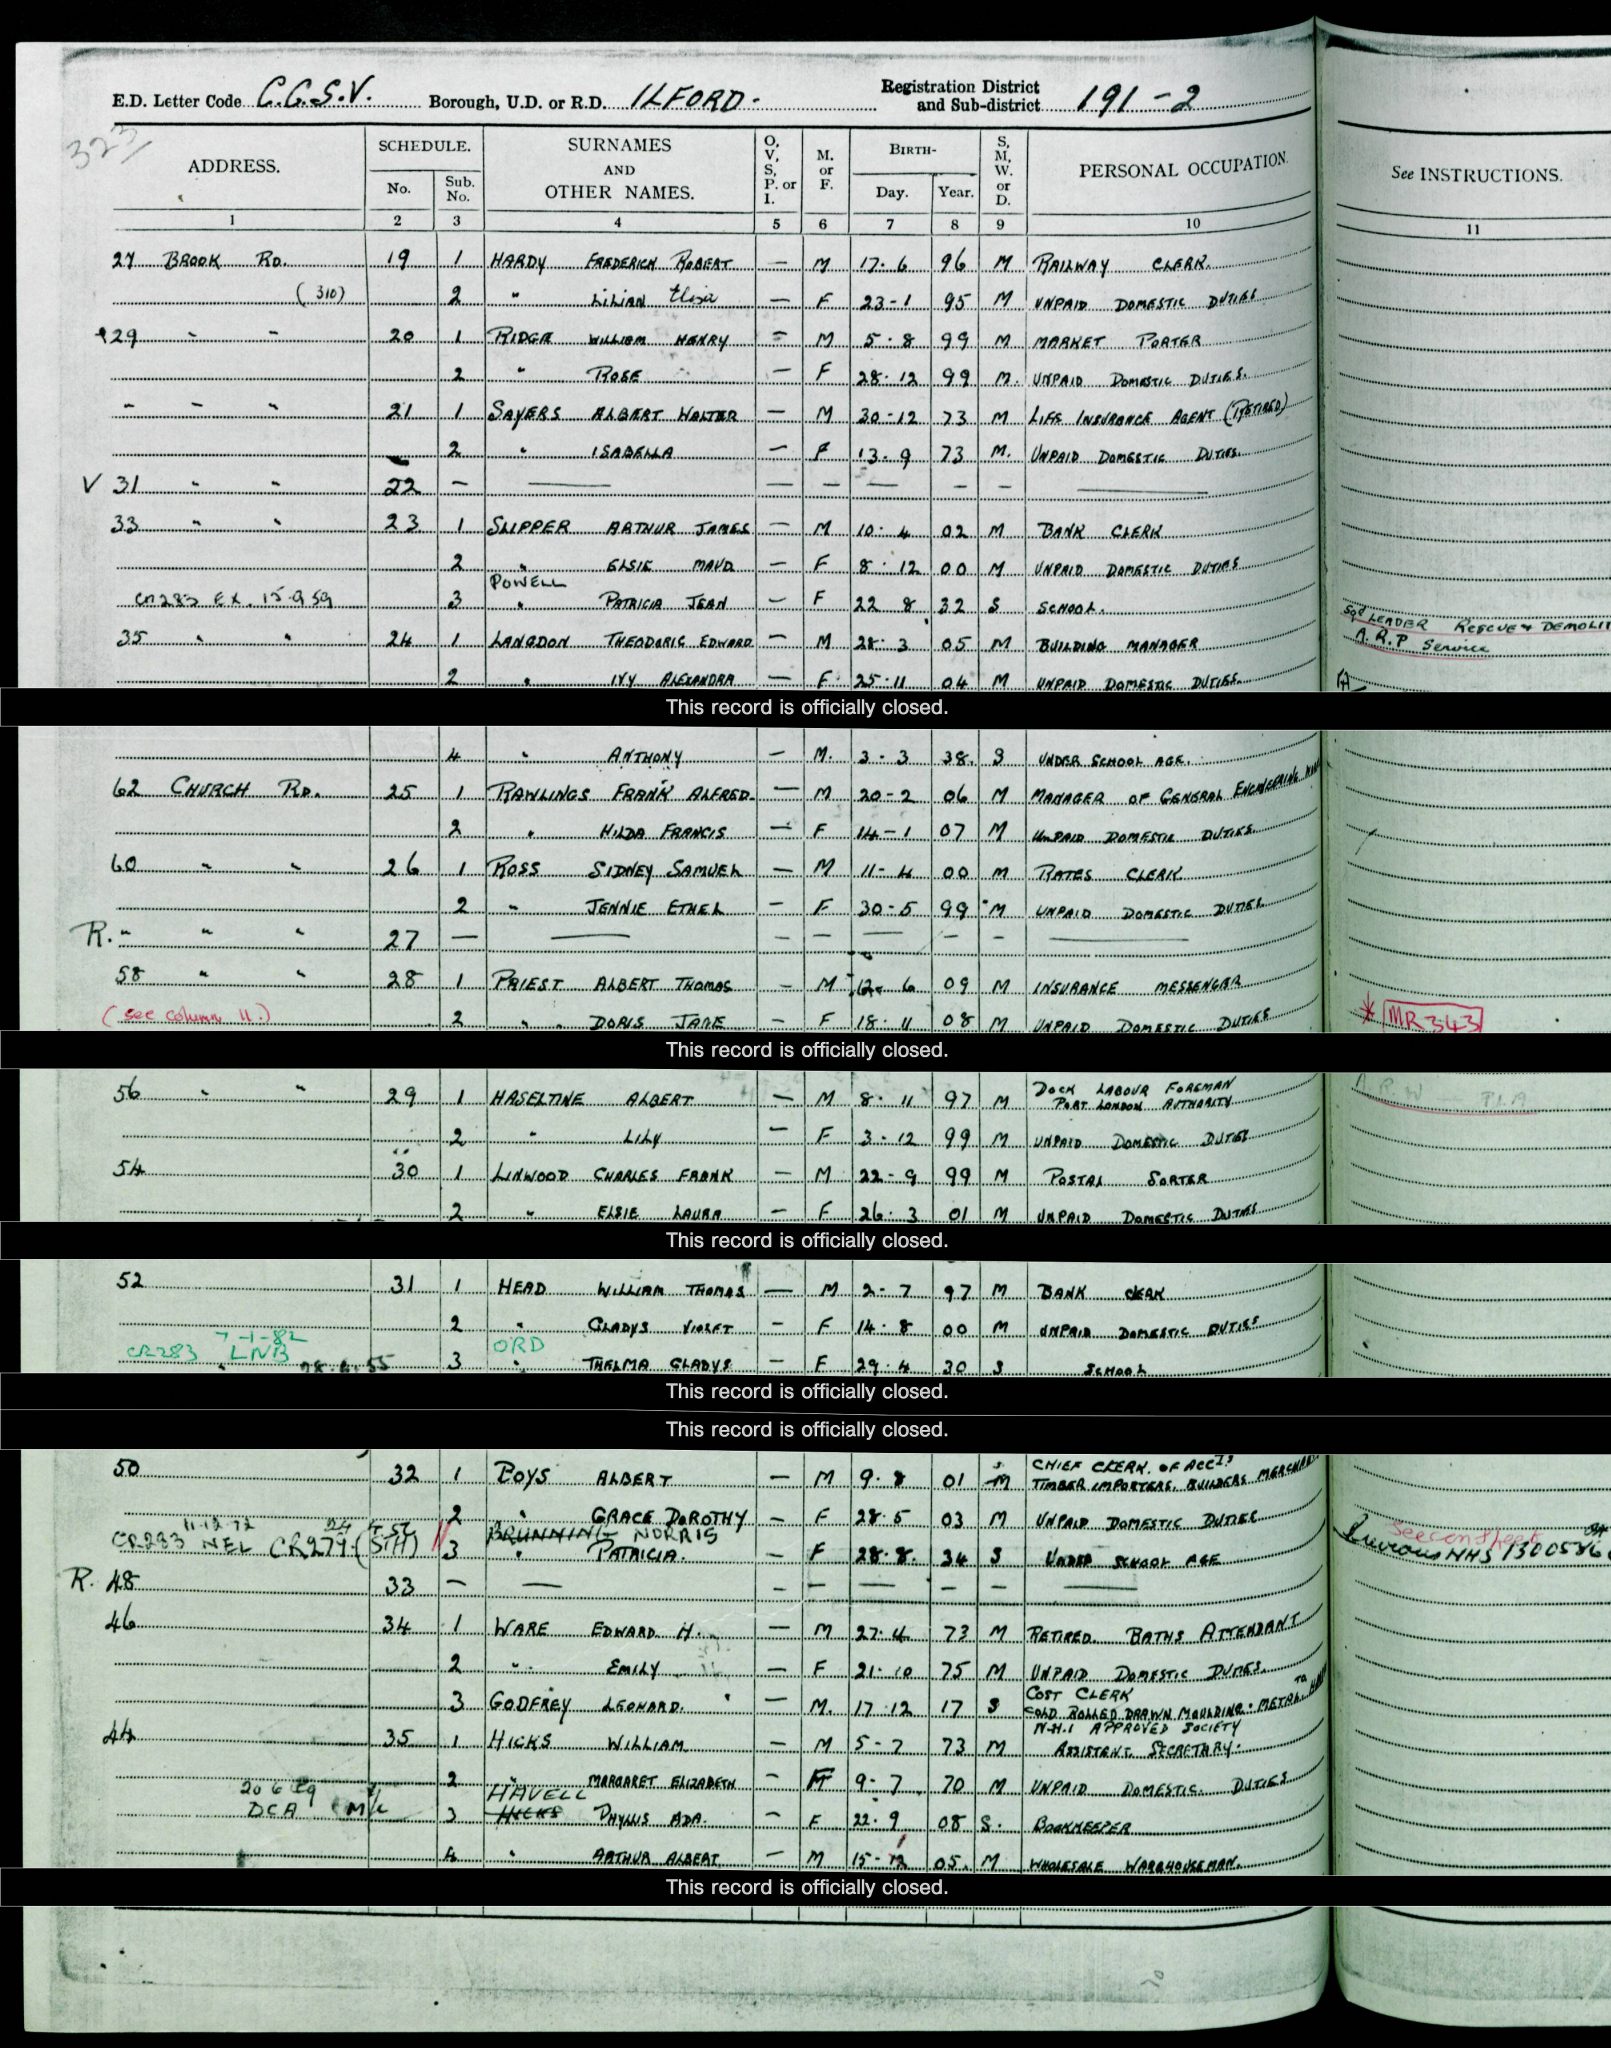 E.D. Letter Code C.G.S.V. Borough, U.D. or R.D. ILFORD. Registration District and Sub-district 191-2
323
ADDRESS. SCHEDULE. No. Sub. No. SURNAMES AND OTHER NAMES. O, V, S, P. or I. M. or F. BIRTH- Day. Year. S, M, W. or D. PERSONAL OCCUPATION. See INSTRUCTIONS.
1 2 3 4 5 6 7 8 9 10 11
27 BROOK RD. 19 1 HARDY FREDERICK ROBERT — M 17·6 96 M RAILWAY CLERK.
(310) 2 " LILIAN Eliza — F 23-1 95 M UNPAID DOMESTIC DUTIES
29 " " 20 1 RIDGE WILLIAM HENRY — M 5·8 99 M MARKET PORTER
2 " ROSE — F 28·12 99 M. UNPAID DOMESTIC DUTIES.
" " " 21 1 SAYERS ALBERT WALTER — M 30-12 73 M LIFE INSURANCE AGENT (RETIRED)
2 " ISABELLA — F 13·9 73 M. UNPAID DOMESTIC DUTIES.
V 31 " " 22 — — — — — — — —
33 " " 23 1 SLIPPER ARTHUR JAMES — M 10·4 02 M BANK CLERK
2 " ELSIE MAUD — F 8·12 00 M UNPAID DOMESTIC DUTIES
POWELL
CR283 EX. 15·9 59 3 " PATRICIA JEAN — F 22 8 32 S SCHOOL.
35 " " 24 1 LANGDON THEODORIC EDWARD — M 28·3 05 M BUILDING MANAGER Sqd LEADER RESCUE & DEMOLIT
A.R.P Service
2 " IVY ALEXANDRA — F 25·11 04 M UNPAID DOMESTIC DUTIES.
This record is officially closed.
4 " ANTHONY — M. 3·3 38. S UNDER SCHOOL AGE.
62 CHURCH RD. 25 1 RAWLINGS FRANK ALFRED. — M 20-2 06 M MANAGER OF GENERAL ENGINEERING
2 " HILDA FRANCIS — F 14-1 07 M UNPAID DOMESTIC DUTIES.
60 " " 26 1 ROSS SIDNEY SAMUEL — M 11-4 00 M RATES CLERK
2 " JENNIE ETHEL — F 30-5 99 M UNPAID DOMESTIC DUTIES
R. " " " 27 — — — — — — — —
58 " " 28 1 PRIEST ALBERT THOMAS — M 12·6 09 M INSURANCE MESSENGER
(see column 11.) 2 " " DORIS JANE — F 18·11 08 M UNPAID DOMESTIC DUTIES * MR343
This record is officially closed.
56 " " 29 1 HASELTINE ALBERT — M 8·11 97 M DOCK LABOUR FOREMAN PORT LONDON AUTHORITY
2 " LILY — F 3·12 99 M UNPAID DOMESTIC DUTIES
54 30 1 LINWOOD CHARLES FRANK — M 22-9 99 M POSTAL SORTER
2 " ELSIE LAURA — F 26·3 01 M UNPAID DOMESTIC DUTIES
This record is officially closed.
52 31 1 HEAD WILLIAM THOMAS — M 2-7 97 M BANK CLERK
2 " GLADYS VIOLET — F 14·8 00 M UNPAID DOMESTIC DUTIES
7-1-82 ORD
CR283 LNB 28·6·55 3 " THELMA GLADYS — F 29·4 30 S SCHOOL
This record is officially closed.
This record is officially closed.
50 32 1 BOYS ALBERT — M 9·8 01 M CHIEF CLERK. OF ACCTS TIMBER IMPORTERS, BUILDERS MERCHAN
2 " GRACE DOROTHY — F 28·5 03 M UNPAID DOMESTIC DUTIES
11·12·72 BRUNNING NORRIS
CR283 NEL CR279 (STH) 3 " PATRICIA. — F 28·8. 34 S UNDER SCHOOL AGE Previous NHS
R. 48 33 — — — — — — — —
46 34 1 WARE EDWARD H. — M 27·4 73 M RETIRED BATHS ATTENDANT
2 " EMILY — F 21·10 75 M UNPAID DOMESTIC DUTIES.
3 GODFREY LEONARD. — M. 17·12 17 S COST CLERK COLD ROLLED DRAWN MOULDING. METAL
44 35 1 HICKS WILLIAM — M 5-7 73 M N.H.I APPROVED SOCIETY ASSISTANT SECRETARY.
2 " MARGARET ELIZABETH — F 9-7 70 M UNPAID DOMESTIC DUTIES
HAVELL
DCA 3 HICKS PHYLLIS ADA. — F 22·9 08 S. BOOKKEEPER
4 " ARTHUR ALBERT — M 15-12 05. M WHOLESALE WAREHOUSEMAN.
This record is officially closed.